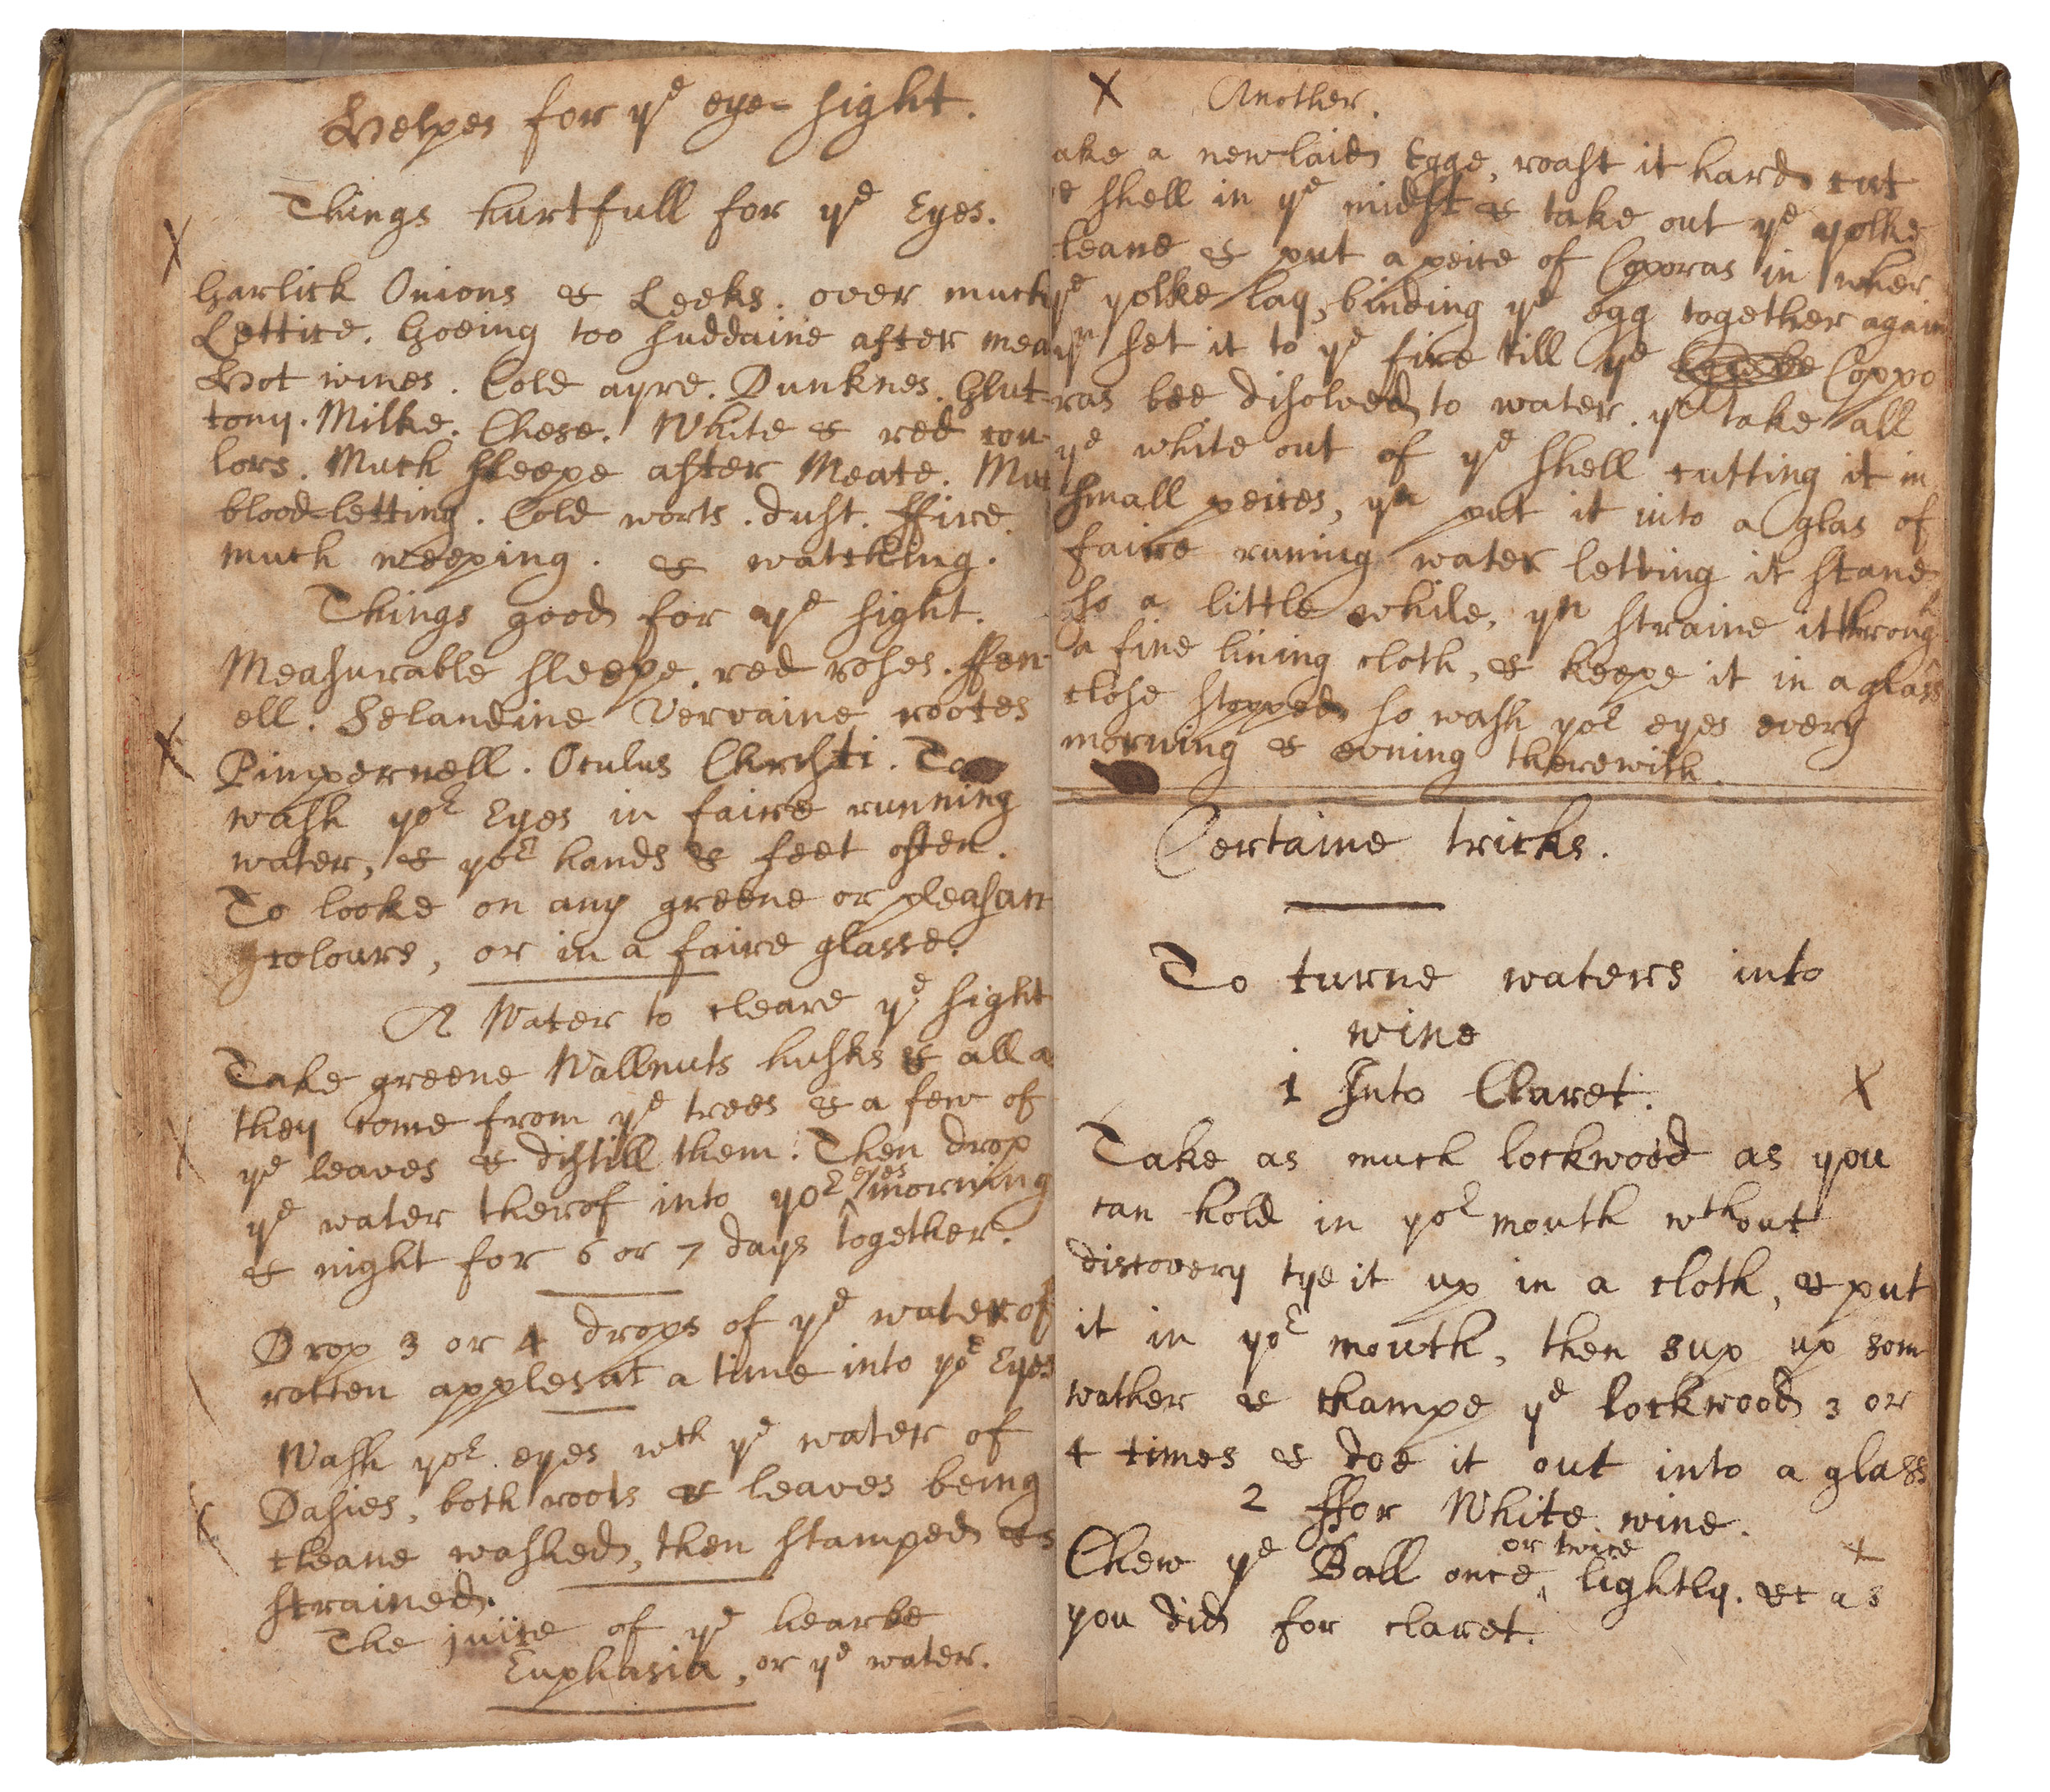 Helpes for yᵉ eye-sight.
Things hurtfull for yᵉ Eyes.
Garlick Onions & Leeks. over much
Lettice. Goeing too suddaine after mea
Hot wines. Cold ayre. Dunknes. Glut-
tony. Milke. Chese. White & red cou-
lors. Much sleepe after Meate. Muc
blood-letting. Cold worts. dust. ffire.
much weeping. & watching.
Things good for yᵉ sight.
Measurable sleepe. red roses. ffen-
ell. Selandine Vervaine rootes
Pimpernell. Oculus Christi. To
wash yoʳ Eyes in faire running
water, & yoʳ hands & feet often.
To looke on any greene or pleasan
colours, or in a faire glasse.
A Water to cleare yᵉ sight
Take greene Wallnuts husks & all a
they come from yᵉ trees & a few of
yᵉ leaves & distill them. Then drop
yᵉ water therof into yoʳ ^eyes morning
& night for 6 or 7 days together.
Drop 3 or 4 drops of yᵉ water of
rotten apples at a time into yoʳ Eyes
Wash yoʳ eyes wᵗʰ yᵉ water of
Dasies, both roots & leaves being
cleane washed, then stamped &
strained.
The juice of yᵉ hearbe
Euphasia, or yᵉ water.
X Another.
ake a new laid Egge, roast it hard cut
e shell in yᵉ midst & take out yᵉ yolke
cleane & put a peice of Coporas in wher
yᵉ yolke lay, binding yᵉ egg together again
yⁿ set it to yᵉ fire till yᵉ Coppo
ras bee disolved to water. yⁿ take all
yᵉ white out of yᵉ shell cutting it in
small peices, yⁿ put it into a glas of
faire runing water letting it stand
so a little while, yⁿ straine it throug
a fine lining cloth, & keepe it in a glass
close stopped so wash yoʳ eyes every
morning & evning therewith.
Certaine tricks.
To turne waters into
wine
1 Into Claret. X
Take as much lockwood as you
can hold in yoʳ mouth wᵗʰout
discovery tye it up in a cloth, & put
it in yoʳ mouth, then sup up som
wather & champe yᵉ lockwood 3 or
4 times & doe it out into a glass
2 ffor White wine.
Chew yᵉ Ball once ^or twice lightly. &c as
you did for claret.